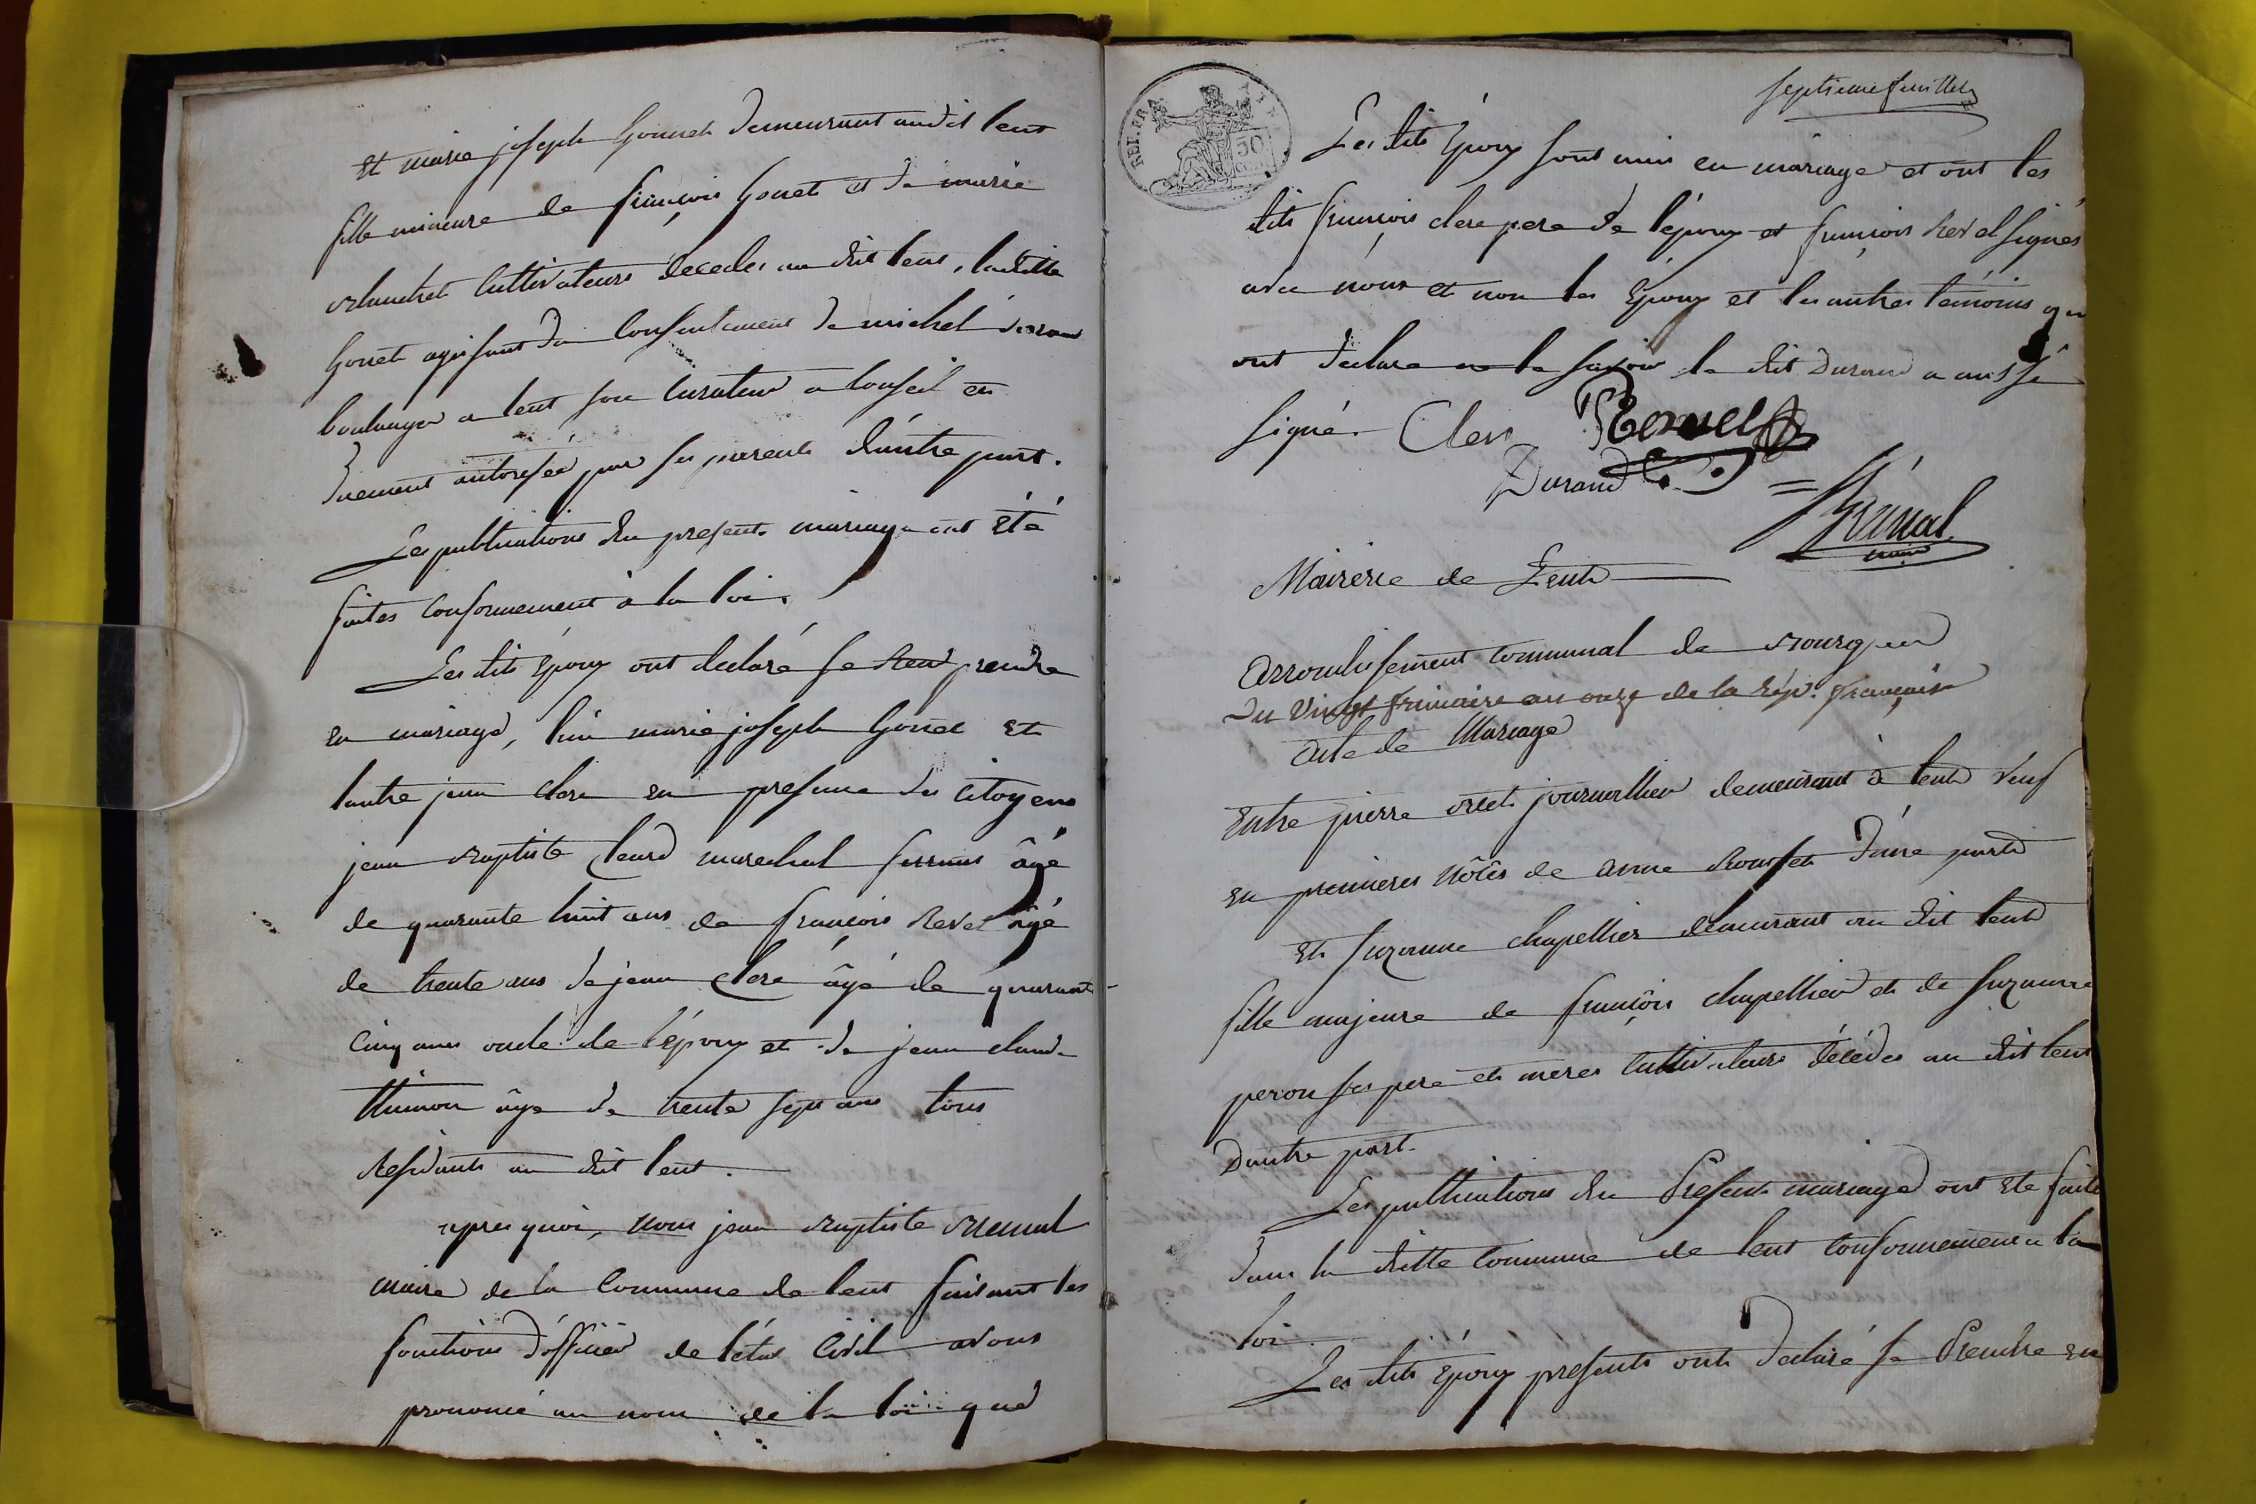 Et marie joseph Gonnet demeurant audit lent
fille mineure de françois Gonet et de marie
cultivateurs decedes au dit lent, laditte
Gonet agissant du Consentement de michel durand
boulanger a lent son curateur a conseil et
duement autorisée par ses parents d'autre part.
Les publications du present mariage ont été
faites conformement à la loi.
Les dits Epoux ont declaré se prendre
en mariage, l'un marie joseph Gonet et
l'autre jean clerc en presence des citoyens
jean Baptiste marechal ferrant âgé
de quarante huit ans de françois Revel âgé
de trente ans de jean clerc âgé de quarante
cinq ans oncle de l'époux et de jean claude
thimon âgé de trente sept ans tous
Residants au dit lent.
apres quoi, nous jean Baptiste Brenal
maire de la Commune de lent faisant les
fonctions d'officier de l'état Civil avons
prononcé au nom de la loi que
septieme feuillet
REP. FRA.
50
Les dits Epoux sont unis en mariage et ont les
dits françois clerc pere de l'époux et françois Revel signés
avec nous et non les Epoux et les autres témoins qui
ont declaré ne le savoir le dit Durand a aussi
signé. Clerc Revel
Durand
Brenal
maire
Mairerie de Lent
Arrondissement communal de Bourg
Du Vingt frimaire an onze de la rép. française
Acte de Mariage
Entre pierre journallier demeurant à lent veuf
en premieres nôces de anne Rousset d'une part
Et suzanne chapellier demeurant au dit lent
fille majeure de françois chapellier et de suzanne
peron ses pere et meres cultivateurs décédés au dit lent
D'autre part.
Les publications du Present mariage ont eté faite
dans la ditte commune de lent conformement a la
loi.
Les dits époux presents ont declaré se Prendre en